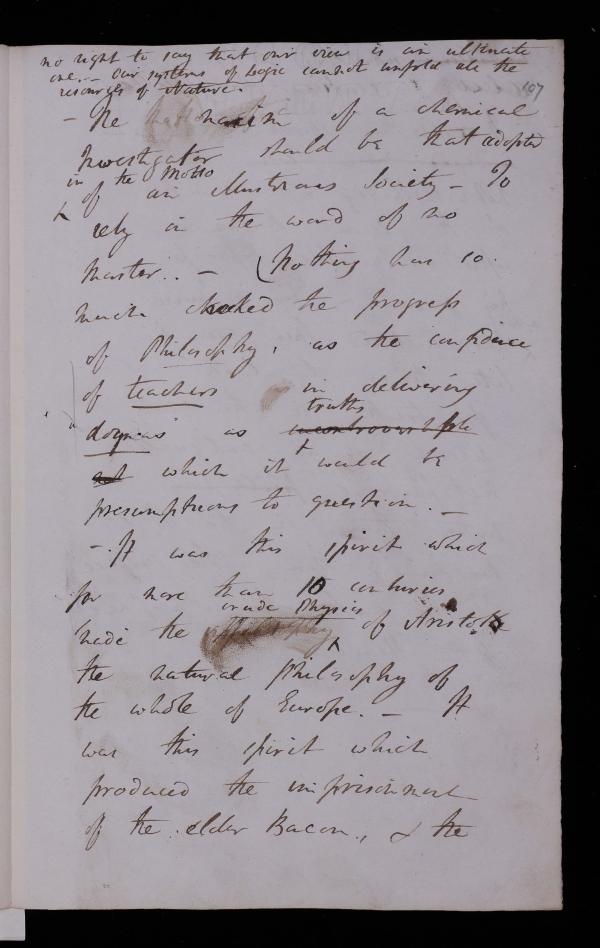 no right to say that our view is an ultimate
one. – Our systems of Logic cannot unfold all the
resources of Nature.
107
– The maxim of a chemical
Investigator should be that adopted
in the Motto
of an illustrious Society – To
rely on the word of no
Master.. – (Nothing has so
much checked the progress
of Philosophy, as the confidence
of teachers in delivering
truths
dogmas as incontrovertible
which it would be
presumptuous to question. –
– It was this spirit which
for more than 10 centuries
crude Physics
made the philosophy of Aristotle
the natural philosophy of
the whole of Europe. – It
was this spirit which
produced the imprisonment
of the elder Bacon, & the